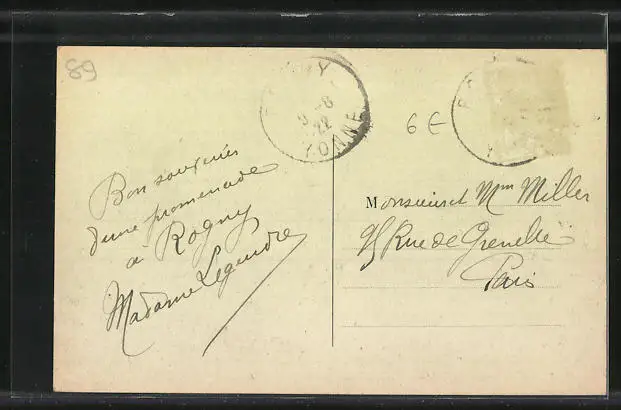 89
ROGNY
9-8
22
YONNE
6 €
Bon souvenir
d'une promenade
à Rogny
Madame Legendre
Monsieur et Mme Miller
95 Rue de Grenelle
Paris